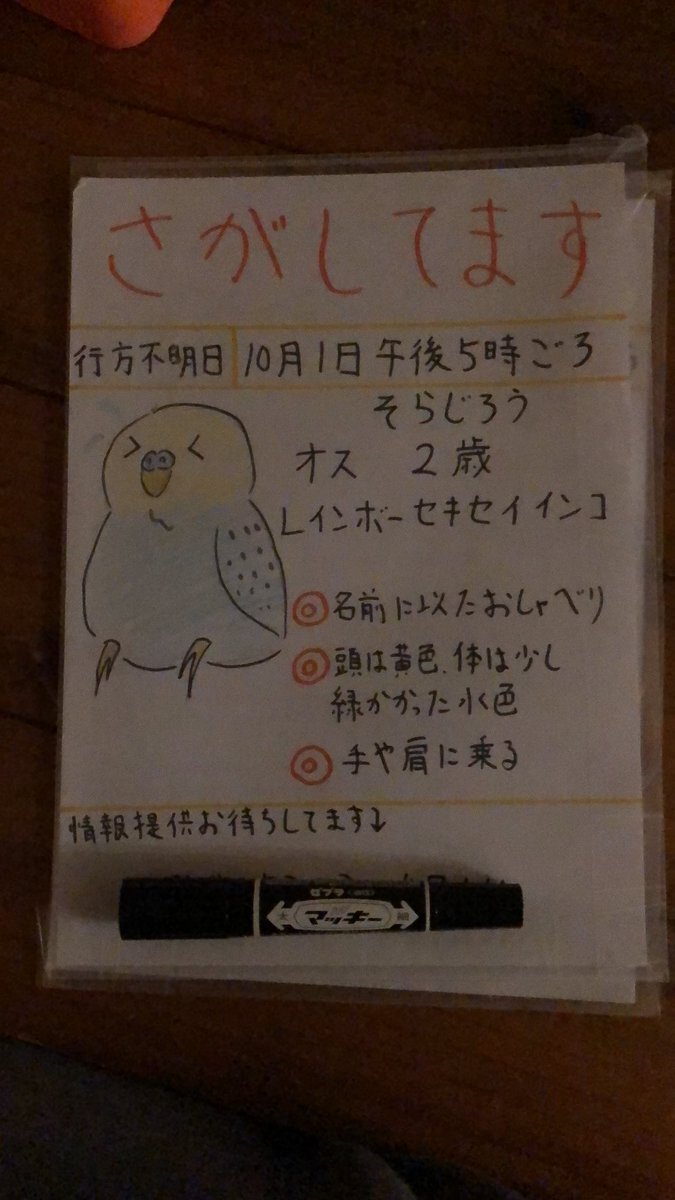 さがしてます
行方不明日 10月1日 午後5時ごろ
そらじろう
オス 2歳
レインボーセキセイインコ
◎名前に似たおしゃべり
◎頭は黄色、体は少し
緑かかった水色
◎手や肩に乗る
情報提供お待ちしてます↓
ゼブラ
太 マッキー 細